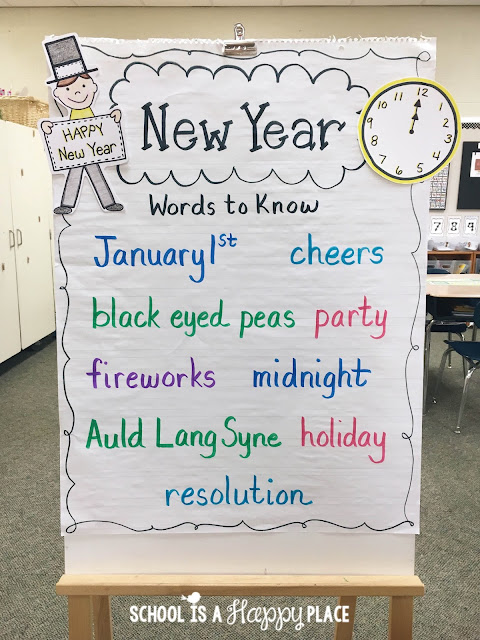 New Year
HAPPY
New Year
12
11 1
10 2
9 3
8 4
7 5
6
Words to Know
January 1st cheers
black eyed peas party
fireworks midnight
Auld Lang Syne holiday
resolution
7 8 9
SCHOOL IS A Happy PLACE